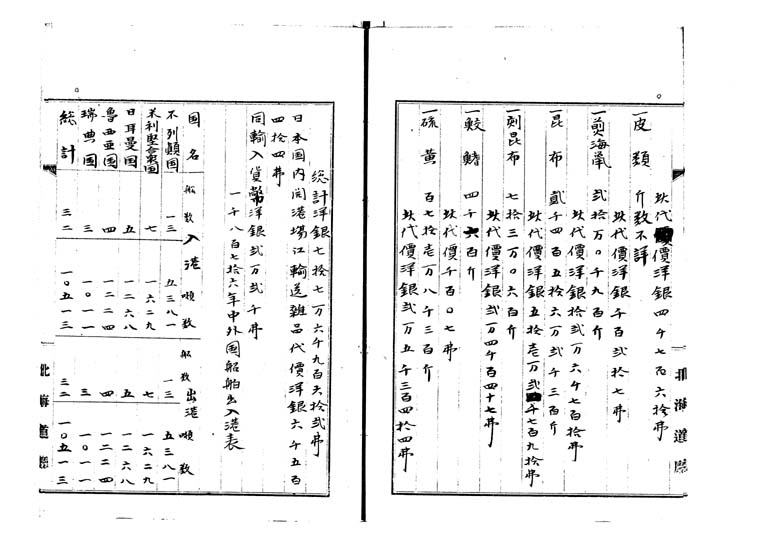 此代價洋銀四千七百六拾弗
一皮類 斤数不詳
此代價洋銀千百弐拾七弗
一煎海鼠 弐拾万〇千九百斤
此代價洋銀拾弐万六千七百拾弗
一昆布 貳千四百五拾六万弐千三百斤
此代價洋銀五拾壱万弐千七百九拾弗
一刻昆布 七拾三万〇六百斤
此代價洋銀弐万四千百四十七弗
一鮫鰭 四千六百斤
此代價千百〇七弗
一硫黄 百七拾壱万八千三百斤
此代價洋銀弐万五千三百四拾四弗
北海道廳
総計洋銀七拾七万六千九百六拾弐弗
日本国内開港場江輸送雑品代價洋銀六千五百
四拾四弗
同輸入貨幣洋銀弐万弐千弗
一千八百七拾六年中外国船舶出入港表
国名 船数 入港 噸数 船数 出港 噸数
不列顛国 一三 五三八一 一三 五三八一
米利堅合衆国 七 一六二九 七 一六二九
日耳曼国 五 一二六八 五 一二六八
魯西亜国 四 一二二四 四 一二二四
瑞典国 三 一〇一一 三 一〇一一
総計 三二 一〇五一三 三二 一〇五一三
北海道廳